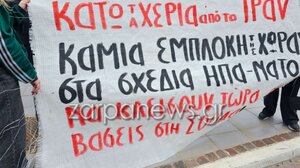 ΚΑΤΩ ΤΑ ΧΕΡΙΑ από το ΙΡΑΝ
ΚΑΜΙΑ ΕΜΠΛΟΚΗ ΤΗΣ ΧΩΡΑΣ
στα σχέδια ΗΠΑ-ΝΑΤΟ
zarpanews.gr
ΝΑ ΚΛΕΙΣΟΥΝ ΤΩΡΑ
ΒΑΣΕΙΣ στη